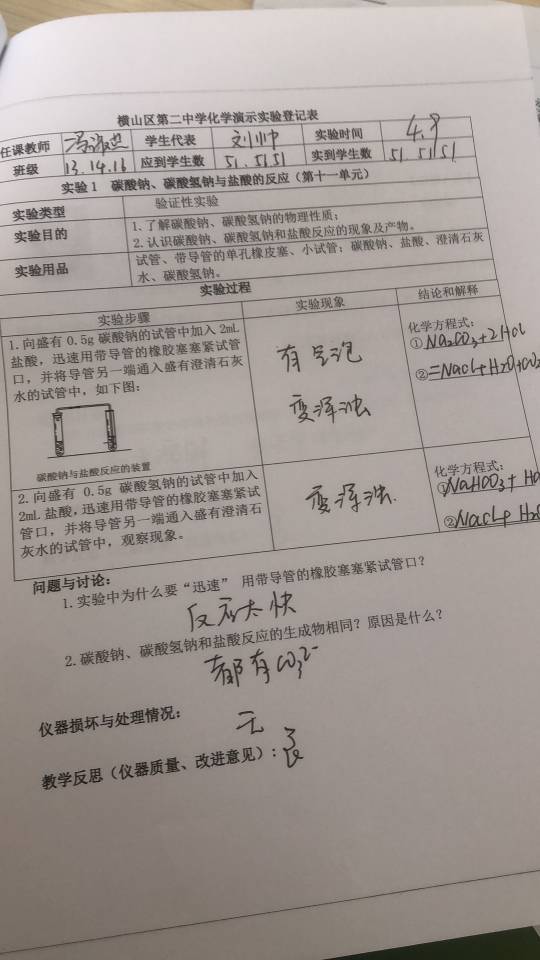 横山区第二中学化学演示实验登记表
任课教师 学生代表 刘帅中 实验时间 4.9
班级 13.14.16 应到学生数 51.5151 实到学生数 51.5151
实验1 碳酸钠、碳酸氢钠与盐酸的反应（第十一单元）
实验类型 验证性实验
实验目的 1.了解碳酸钠、碳酸氢钠的物理性质；
2.认识碳酸钠、碳酸氢钠和盐酸反应的现象及产物。
实验用品 试管、带导管的单孔橡皮塞、小试管；碳酸钠、盐酸、澄清石灰
水、碳酸氢钠。
实验过程
实验步骤 实验现象 结论和解释
1.向盛有 0.5g 碳酸钠的试管中加入 2mL
盐酸，迅速用带导管的橡胶塞塞紧试管
口，并将导管另一端通入盛有澄清石灰
水的试管中，如下图：
碳酸钠与盐酸反应的装置
有气泡
变浑浊
化学方程式：
①Na2CO3+2HCl
②=NaCl+H2O+CO2
2.向盛有 0.5g 碳酸氢钠的试管中加入
2mL 盐酸，迅速用带导管的橡胶塞塞紧试
管口，并将导管另一端通入盛有澄清石
灰水的试管中，观察现象。
变浑浊.
化学方程式：
①NaHCO3+H
②NaCl+H2O
问题与讨论：
1.实验中为什么要“迅速” 用带导管的橡胶塞塞紧试管口？
反应太快
2.碳酸钠、碳酸氢钠和盐酸反应的生成物相同？原因是什么？
都有CO3²⁻
仪器损坏与处理情况： 无
教学反思（仪器质量、改进意见）： 良